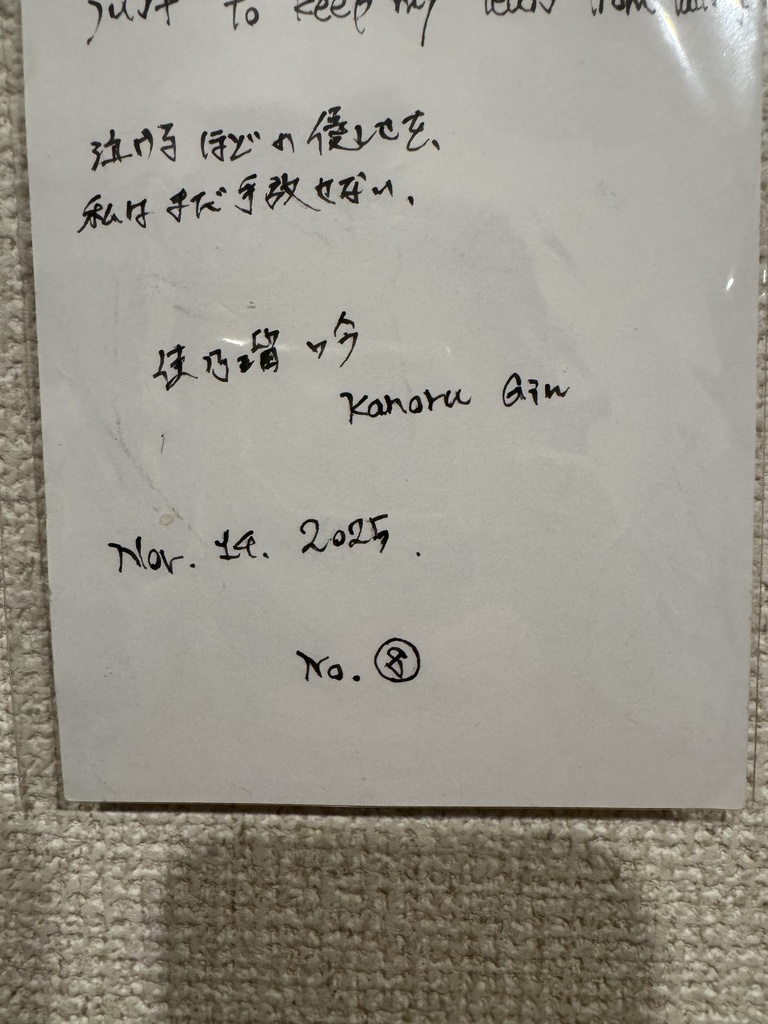 just to keep my tears from
泣けるほどの優しさを、
私はまだ手放せない。
佳乃瑠 吟
Kanoru Gin
Nov. 14. 2025.
No. ⑧